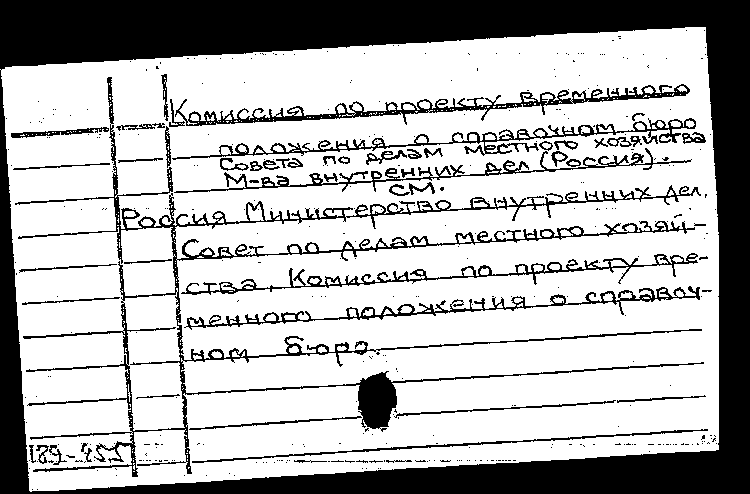 Комиссия по проекту временного
положения о справочном бюро
Совета по делам местного хозяйства
М-ва внутренних дел (Россия).
см.
Россия Министерство внутренних дел.
Совет по делам местного хозяй-
ства. Комиссия по проекту вре-
менного положения о справоч-
ном бюро.
189-455